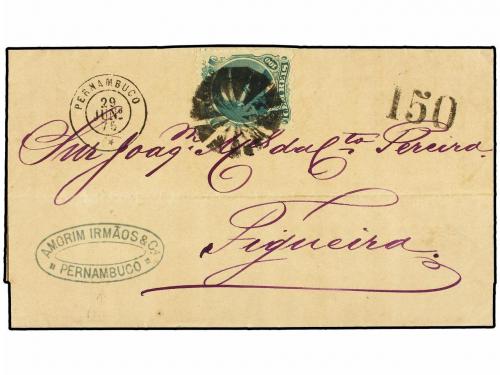 PERNAMBUCO
29
JUN.
75
100
150
Snr Joaqm Ms da Cta Pereira.
Figueira.
AMORIM IRMÃOS & Ca.
PERNAMBUCO